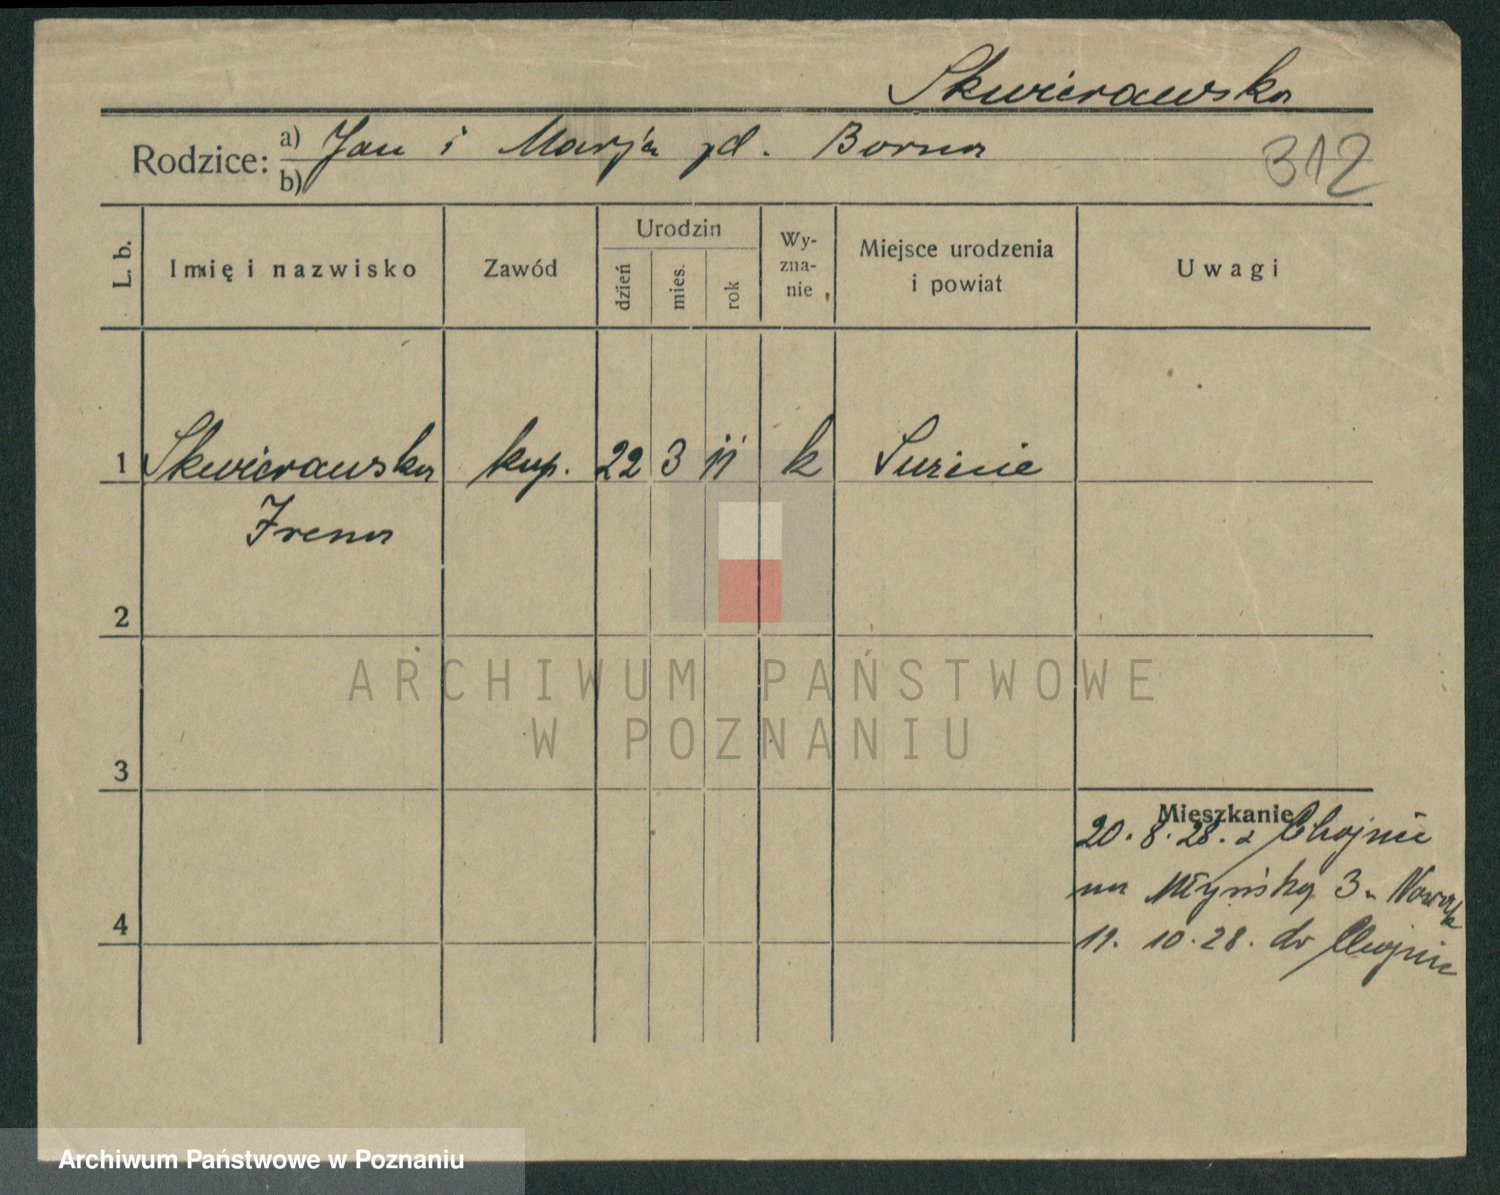 Skwierawska
Rodzice: a) Jan i Marja zd. Borna
b)
312
L. b.
Imię i nazwisko
Zawód
Urodzin
dzień
mies.
rok
Wy-
zna-
nie
Miejsce urodzenia
i powiat
Uwagi
1 Skwierawska kup. 22 3 11 k
Irena
2
ARCHIWUM PAŃSTWOWE
W POZNANIU
3
Mieszkanie
20. 8. 28. z Chojnic
na Młyńską 3
4
11. 10. 28. do Chojnic
Archiwum Państwowe w Poznaniu